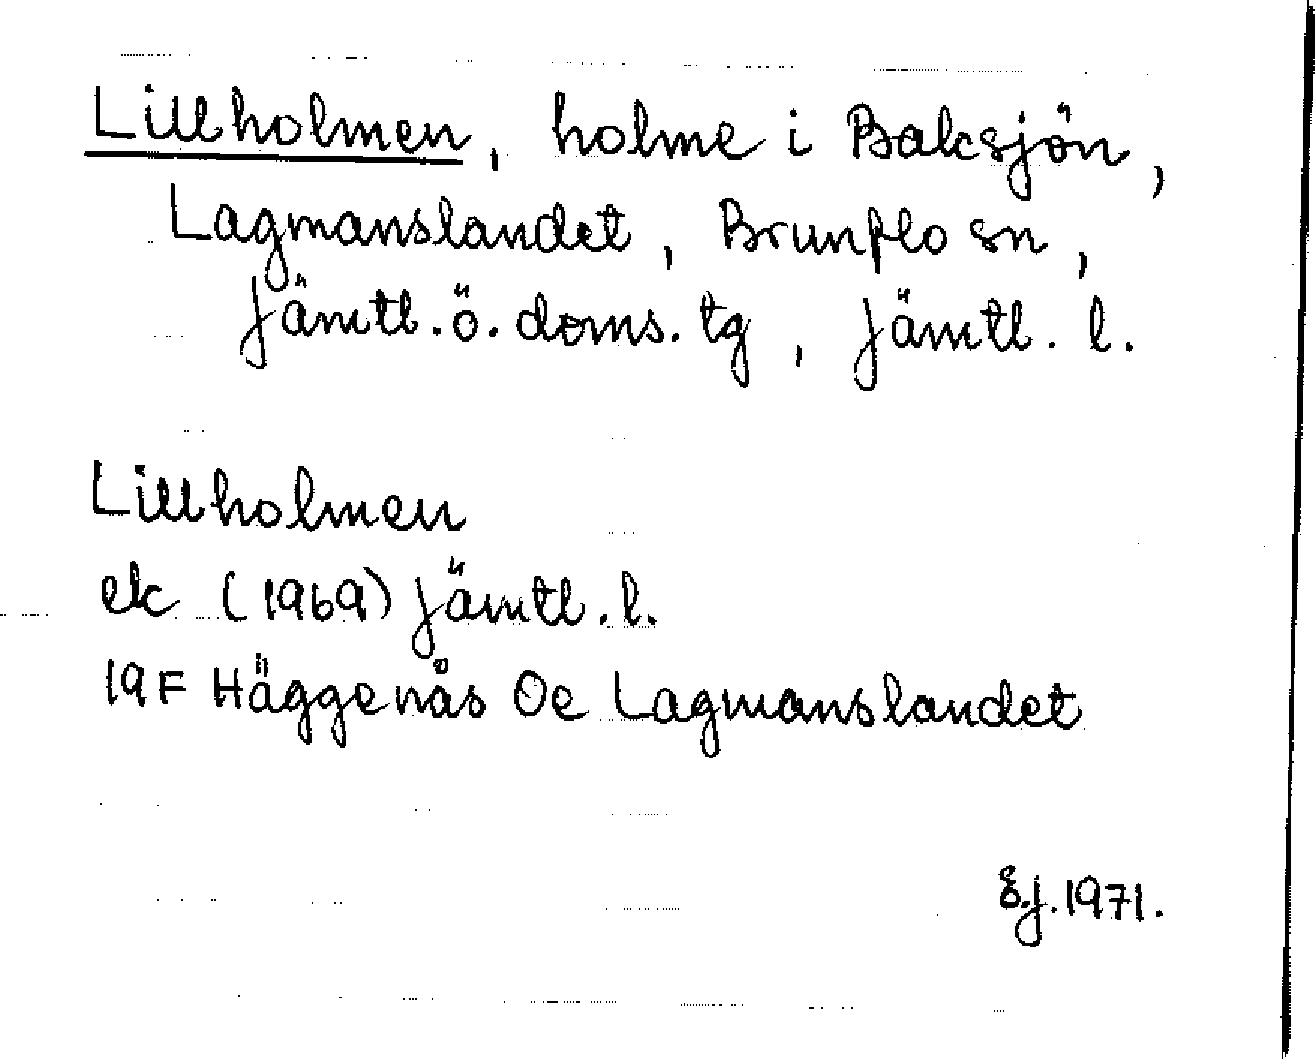 Lillholmen, holme i Baksjön,
Lagmanslandet, Brunflo sn,
Jämtl.ö.doms.tg, Jämtl. l.
Lillholmen
ek (1969) Jämtl.l.
19F Häggenås Oe Lagmanslandet
E.J.1971.